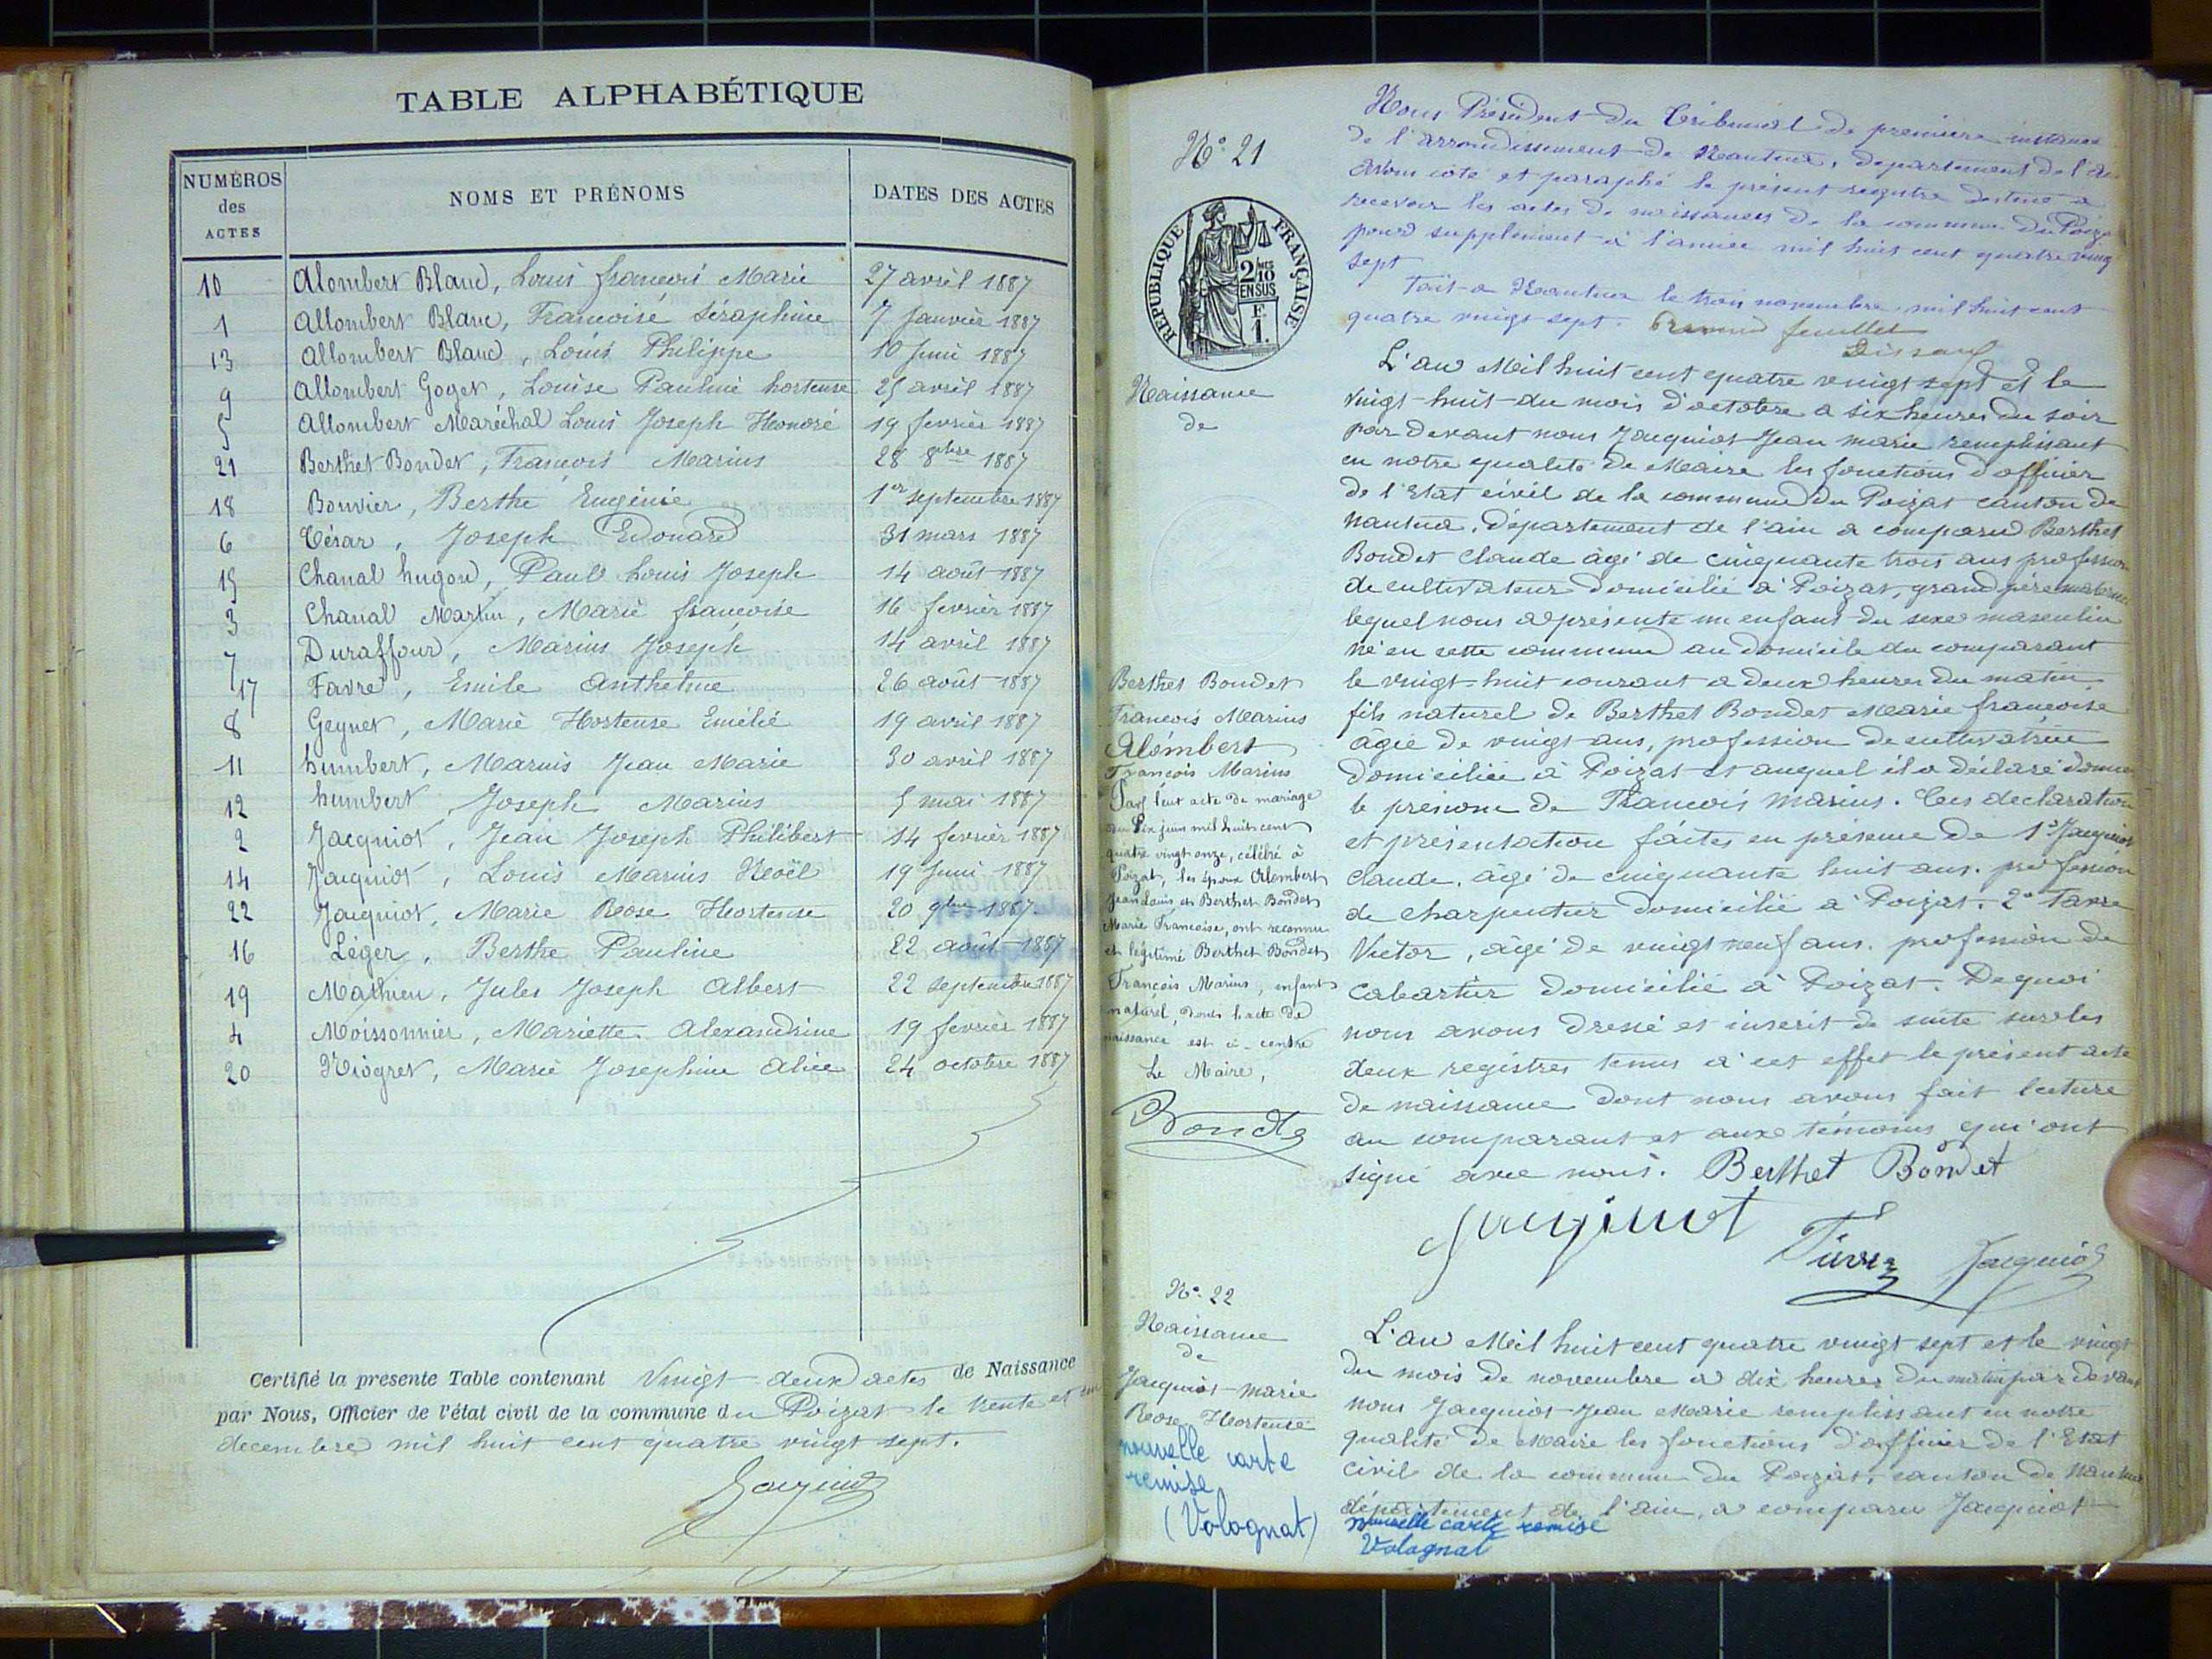 TABLE ALPHABÉTIQUE
NUMÉROS des ACTES
NOMS ET PRÉNOMS
DATES DES ACTES
10 Alombert Blanc, Louis françois Marie 27 avril 1887
1 Allombert Blanc, Françoise Séraphine 7 Janvier 1887
13 Allombert Blanc, Louis Philippe 10 Juin 1887
9 Allombert Goget, Louise Pauline hortense 25 avril 1887
5 Allombert Maréchal Louis Joseph Honoré 19 fevrier 1887
21 Berthet Bondet, François Marius 28 8bre 1887
18 Bouvier, Berthe Eugénie 1er septembre 1887
6 César, Joseph Edouard 31 mars 1887
15 Chanal hugon, Paul Louis Joseph 14 août 1887
3 Chanal Martin, Marie françoise 16 fevrier 1887
7 Duraffour, Marius Joseph 14 avril 1887
17 Favre, Emile Anthelme 26 août 1887
8 Geynet, Marie Hortense Emélié 19 avril 1887
11 humbert, Marius Jean Marie 30 avril 1887
12 humbert, Joseph Marius 5 mai 1887
2 Jacquiot, Jean Joseph Philibert 14 fevrier 1887
14 Jacquiot, Louis Marius Noël 19 Juin 1887
22 Jacquiot, Marie Rose Hortense 20 9bre 1887
16 Léger, Berthe Pauline 22 août 1887
19 Mathieu, Jules Joseph Albert 22 septembre 1887
4 Moissonnier, Mariette Alexandrine 19 fevrier 1887
20 Niogret, Marie Josephine Alice 24 octobre 1887
Certifié la présente Table contenant Vingt-deux actes de Naissance
par Nous, Officier de l'état civil de la commune du Poizat le trente et un
decembre mil huit cent quatre vingt sept.
Jacquiot
N° 21
RÉPUBLIQUE FRANÇAISE
2/10
EN SUS
F.
1.
Naissance
de
Berthet Bondet
François Marius
Alombert
François Marius
Par leur acte de mariage
du Dix juin mil huit cent
quatre vingt onze, célébré à
Poizat, les époux Alombert
Jean Louis et Berthet Bondet
Marie Françoise, ont reconnu
et légitimé Berthet Bondet
François Marius, enfant
naturel, dont l'acte de
naissance est ci-contre
Le Maire,
Nous Président du Tribunal de première instance
de l'arrondissement de Nantua, département de l'Ain
avons coté et paraphé le présent registre destiné à
recevoir les actes de naissances de la commune du Poizat
pour supplément à l'année mil huit cent quatre vingt
sept
Fait à Nantua le trois novembre mil huit cent
quatre vingt sept. feuillet
L'an Mil huit cent quatre vingt sept et le
vingt-huit du mois d'octobre a six heures du soir
par devant nous Jacquiot Jean marie remplissant
en notre qualité de Maire les fonctions d'officier
de l'Etat civil de la commune du Poizat canton de
Nantua, département de l'ain a comparu Berthet
Bondet Claude âgé de cinquante trois ans profession
de cultivateur domicilié à Poizat, grand père maternel
lequel nous a présenté un enfant du sexe masculin
né en cette commune au domicile du comparant
le vingt-huit courant a deux heures du matin
fils naturel de Berthet Bondet Marie françoise
âgée de vingt ans, profession de cultivatrice
domiciliée à Poizat et auquel il a déclaré donner
le prénom de François Marius. Ces declaration
et présentation faites en présence de 1° Jacquiot
Claude, âgé de cinquante huit ans. profession
de charpentier domicilié à Poizat. 2° Favre
Victor, âgé de vingt neuf ans. profession de
cabartier domicilié à Poizat. De quoi
nous avons dressé et inscrit de suite sur les
deux registres tenus à cet effet le présent acte
de naissance dont nous avons fait lecture
au comparant et aux témoins qui ont
signé avec nous. Berthet Bondet
Jacquiot
Favre Jacquiot
N° 22
Naissance
de
Jacquiot Marie
Rose Hortense
nouvelle carte
remise
(Volognat)
L'an Mil huit cent quatre vingt sept et le vingt
du mois de novembre a dix heures du matin par devant
nous Jacquiot Jean Marie remplissant en notre
qualité de Maire les fonctions d'officier de l'Etat
civil de la commune du Poizat, canton de Nantua
département de l'ain, a comparu Jacquiot
nouvelle carte remise
Volognat